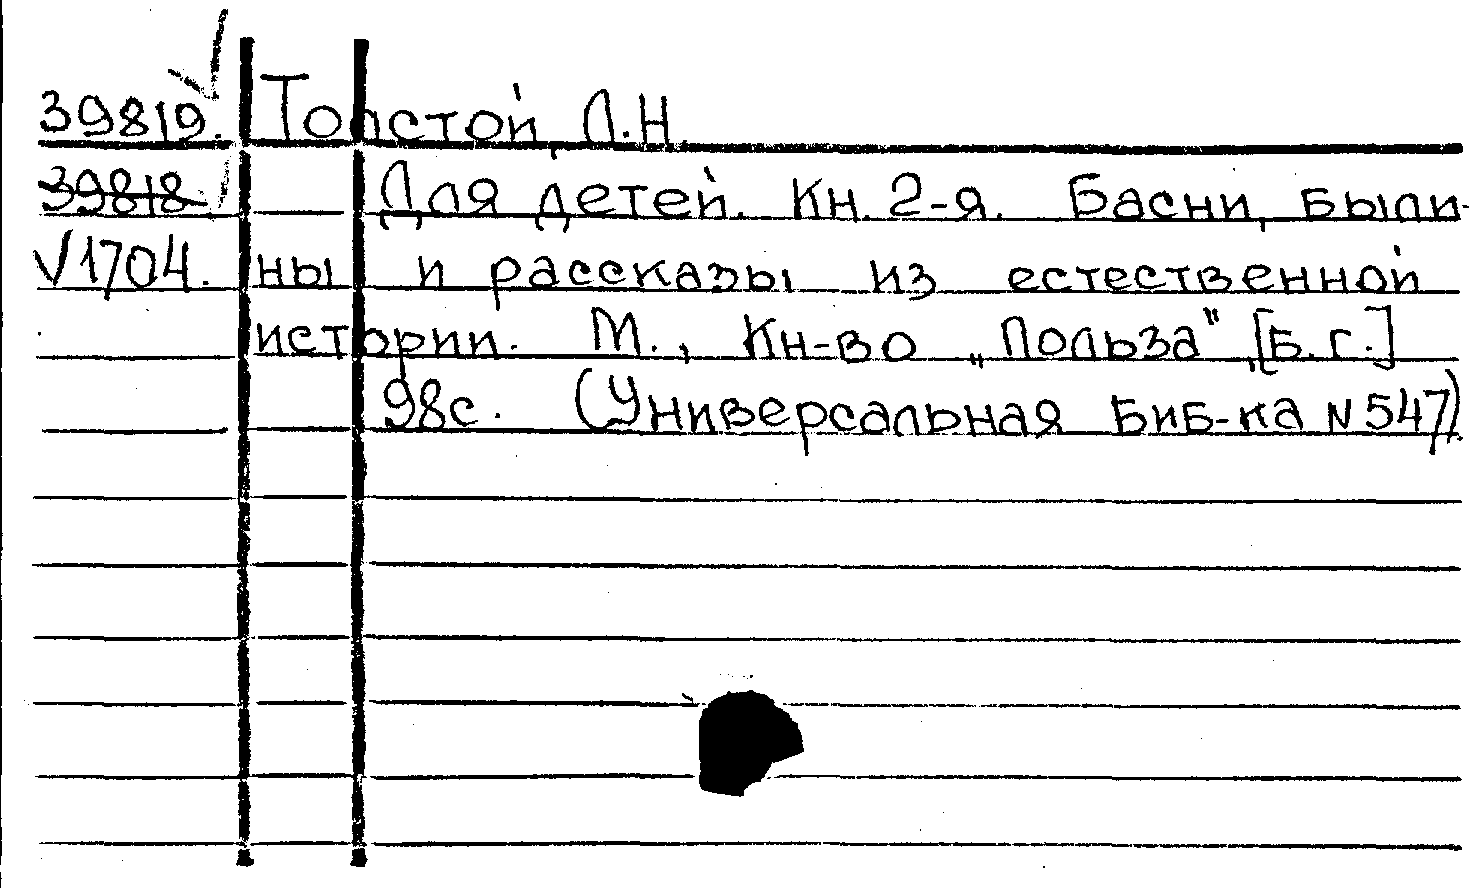 39819. Толстой, Л.Н
39818 Для детей. Кн. 2-я. Басни, были-
√1704. ны и рассказы из естественной
истории. М., Кн-во „Польза", [Б.г.]
98с. (Универсальная биб-ка N 547)